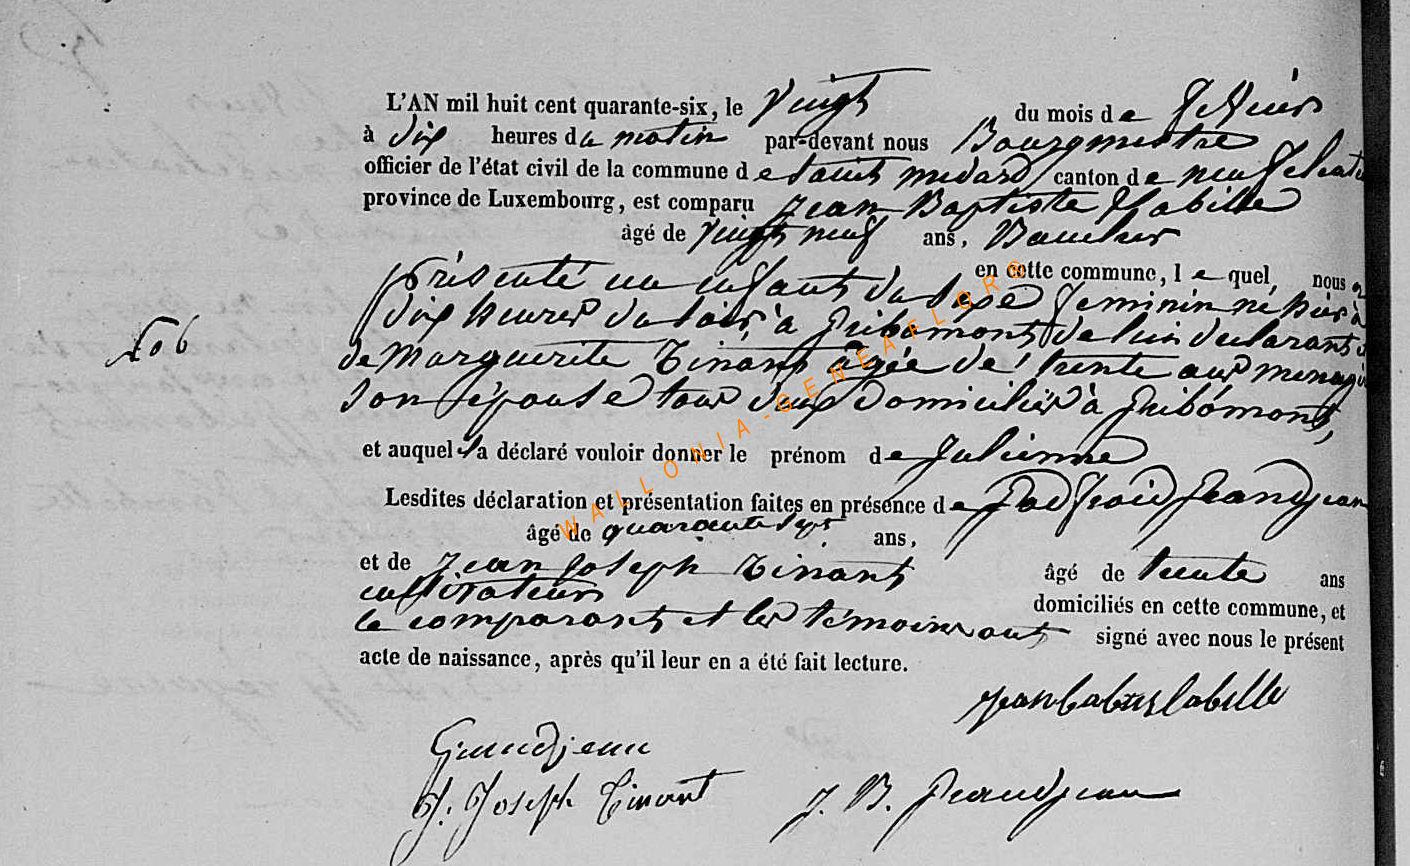 L'AN mil huit cent quarante-six, le vingt du mois de fevrier
à dix heures du matin par-devant nous Bourgmestre
officier de l'état civil de la commune de Saint medard canton de neufchatea
province de Luxembourg, est comparu Jean Baptiste Labille
âgé de vingt neuf ans,
en cette commune, lequel, nous a
présenté un enfant du sexe feminin né hier à
dix heures du soir, à gribomont de lui declarant
No 6
de Marguerite Tinant agée de trente ans menag
son épouse tous deux domiciliés à gribomont,
et auquel il a déclaré vouloir donner le prénom de Julienne
Lesdites déclaration et présentation faites en présence de Godfroid Grandjean
âgé de quarante sept ans,
et de Jean Joseph Tinant âgé de trente ans
cultivateurs domiciliés en cette commune, et
le comparant et les témoins ont signé avec nous le présent
acte de naissance, après qu'il leur en a été fait lecture.
Grandjean
J. Joseph Tinant J. B. Grandjean
WALLONIA-GENEAFLORE